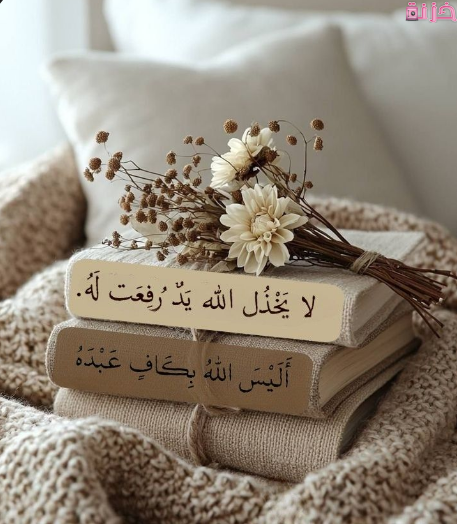 خزنة
لا يَخْذُل الله يَدٌ رُفِعَت لَهُ.
أَلَيْسَ اللهُ بِكَافٍ عَبْدَهُ